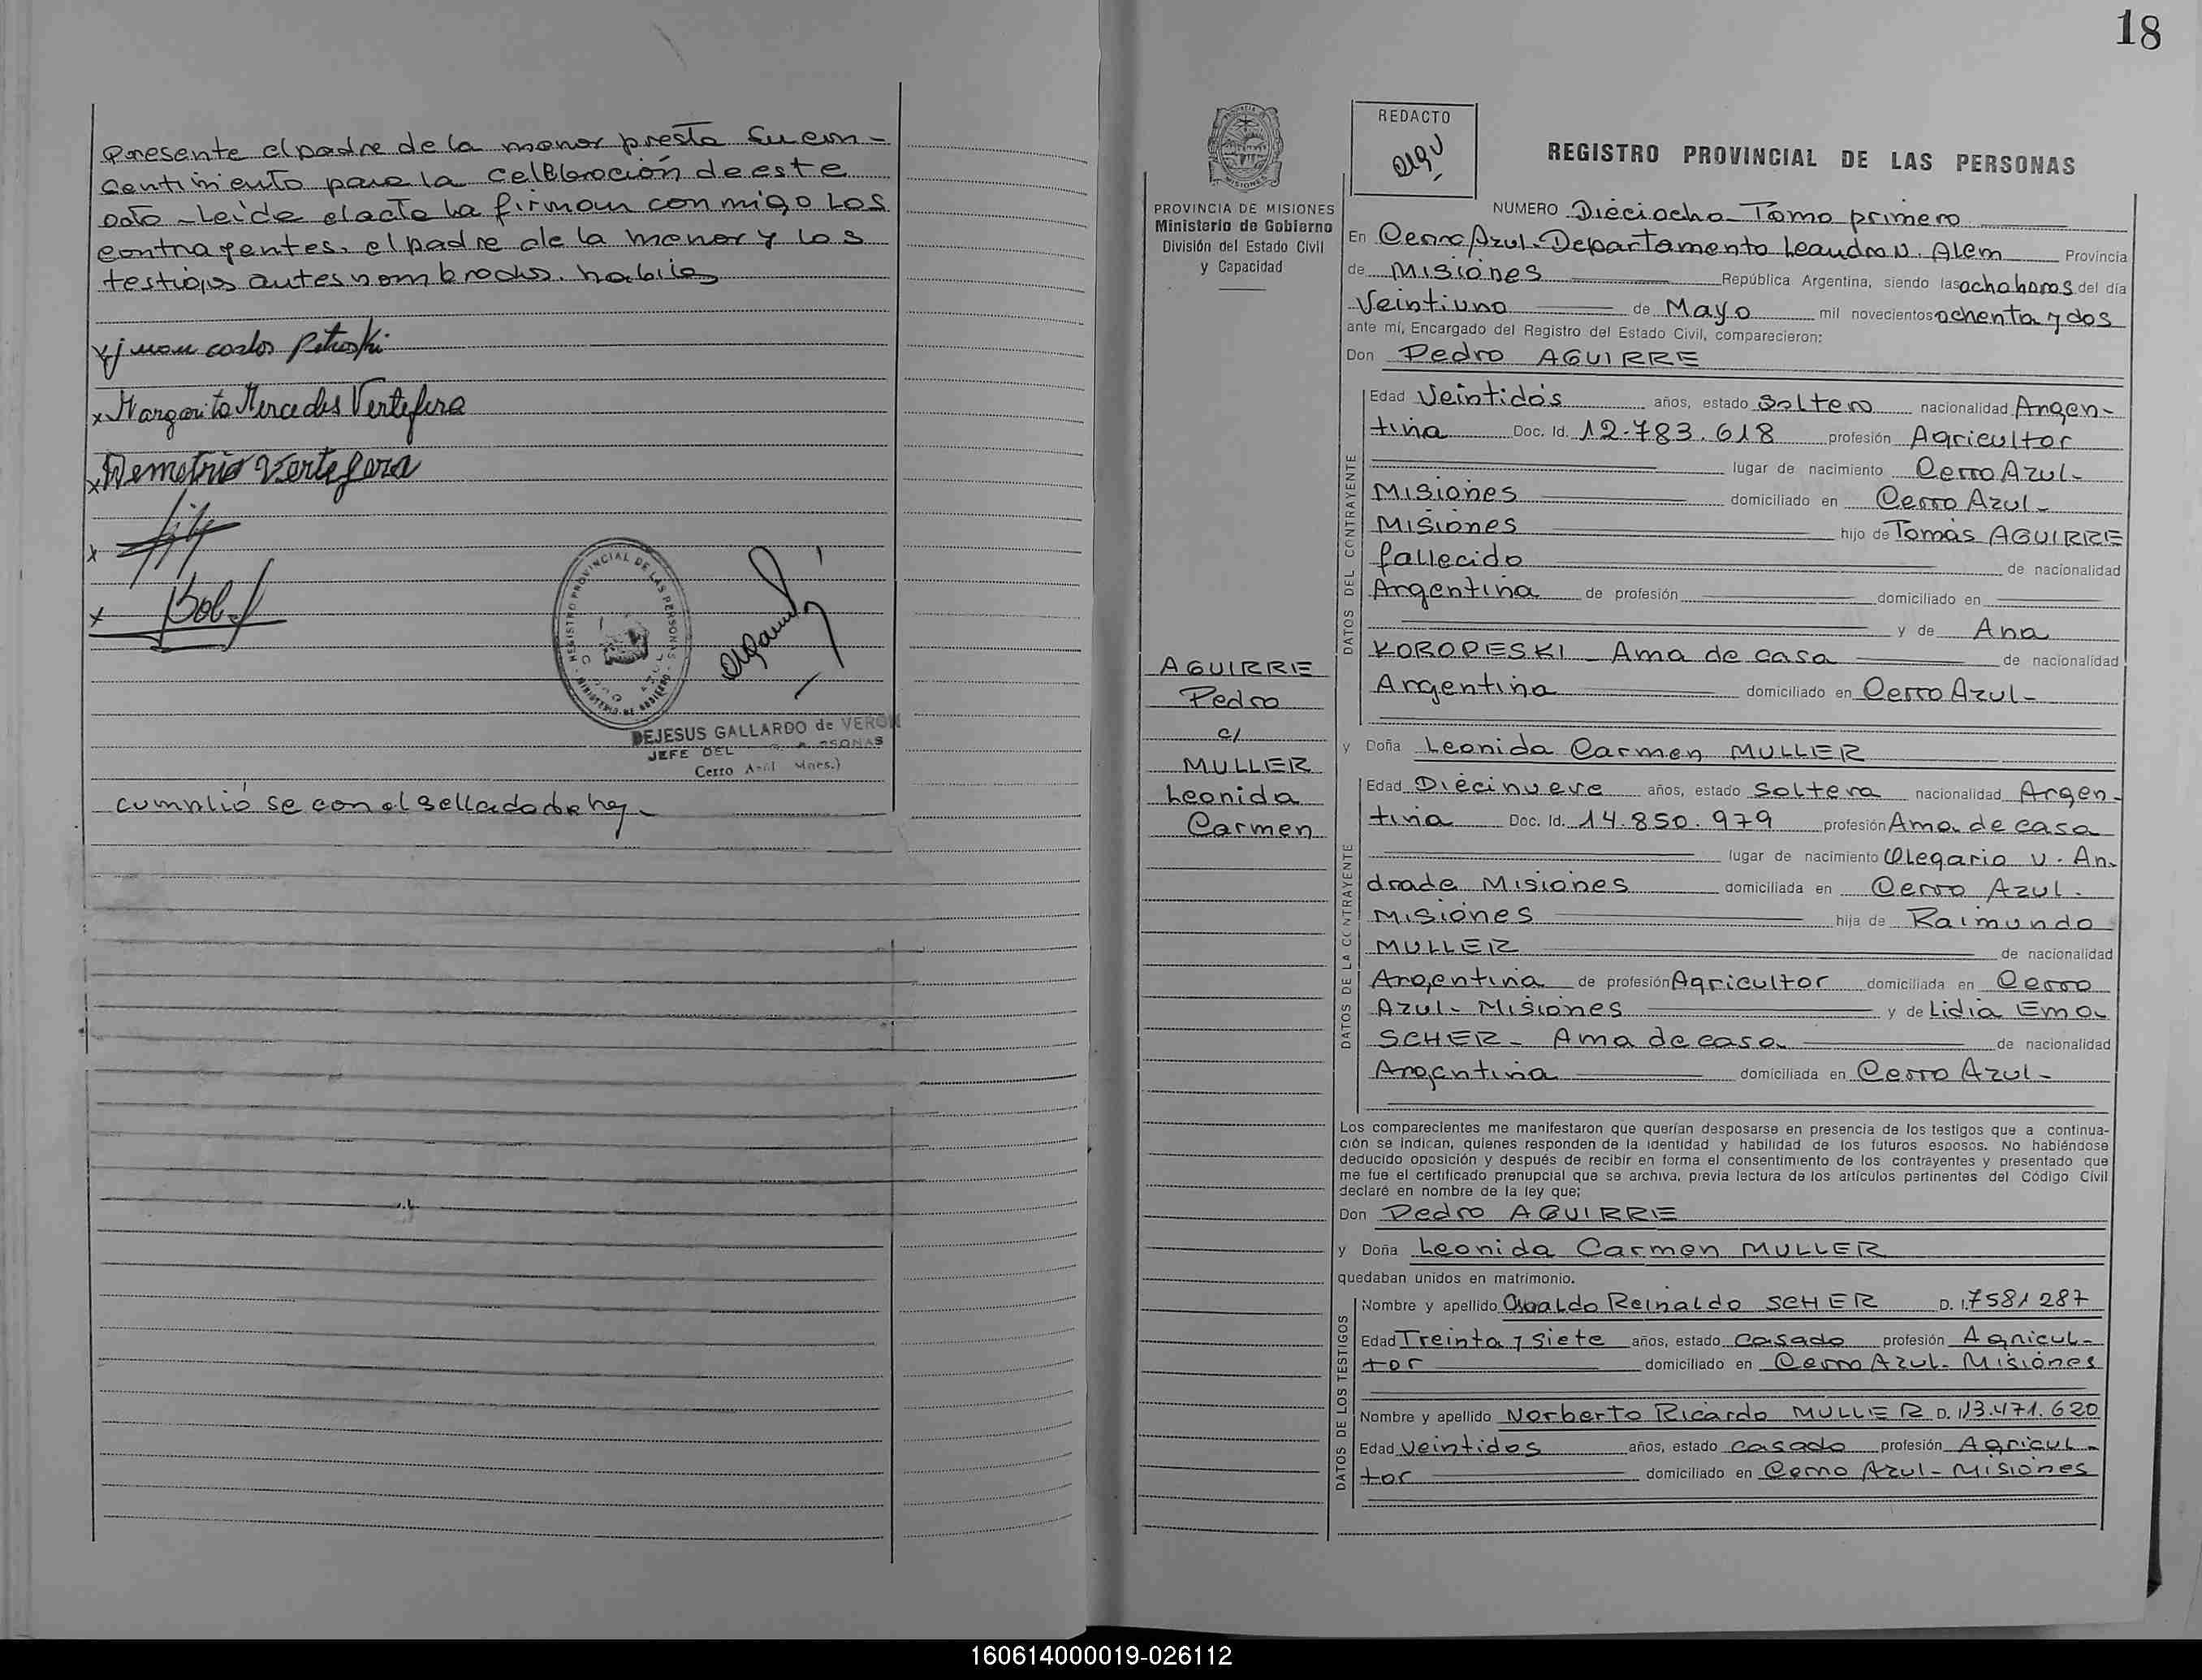 Presente el padre de la menor presta su con-
sentimiento para la celebración de este
acto - Leída el acta la firman conmigo Los
contrayentes. el padre de la menor y los
testigos antes nombrados. habiles
x juan carlos Petroski
x Margarita Mercedes Vertefera
x Demetrio Vertefera
x
x
REGISTRO PROVINCIAL DE LAS PERSONAS
MINISTERIO DE GOBIERNO
DEJESUS GALLARDO de VERON
JEFE DEL
Cerro Azul Mnes.)
cumplió se con el sellado de ley -
18
REDACTO
REGISTRO PROVINCIAL DE LAS PERSONAS
PROVINCIA DE MISIONES
Ministerio de Gobierno
División del Estado Civil
y Capacidad
AGUIRRE
Pedro
c/
MULLER
Leonida
Carmen
NUMERO Dieciocho - Tomo primero
En Cerro Azul - Departamento Leandro N. Alem Provincia
de Misiones República Argentina, siendo las ocho horas del día
Veintiuno de Mayo mil novecientos ochenta y dos
ante mí, Encargado del Registro del Estado Civil, comparecieron:
Don Pedro AGUIRRE
DATOS DEL CONTRAYENTE
Edad Veintidós años, estado Soltero nacionalidad Argen-
tina Doc. Id. 12.783.618 profesión Agricultor
lugar de nacimiento Cerro Azul -
Misiones domiciliado en Cerro Azul -
Misiones hijo de Tomás AGUIRRE
fallecido de nacionalidad
Argentina de profesión domiciliado en
y de Ana
KOROPESKI - Ama de casa de nacionalidad
Argentina domiciliado en Cerro Azul -
y Doña Leonida Carmen MULLER
DATOS DE LA CONTRAYENTE
Edad Diecinueve años, estado Soltera nacionalidad Argen-
tina Doc. Id. 14.850.979 profesión Ama de casa
lugar de nacimiento Olegario V. An-
drade Misiones domiciliada en Cerro Azul -
Misiones hija de Raimundo
MULLER de nacionalidad
Argentina de profesión Agricultor domiciliada en Cerro
Azul - Misiones y de Lidia Ema
SCHER - Ama de casa de nacionalidad
Argentina domiciliada en Cerro Azul -
Los comparecientes me manifestaron que querían desposarse en presencia de los testigos que a continua-
ción se indican, quienes responden de la identidad y habilidad de los futuros esposos. No habiéndose
deducido oposición y después de recibir en forma el consentimiento de los contrayentes y presentado que
me fue el certificado prenupcial que se archiva, previa lectura de los artículos pertinentes del Código Civil
declaré en nombre de la ley que;
Don Pedro AGUIRRE
y Doña Leonida Carmen MULLER
quedaban unidos en matrimonio.
DATOS DE LOS TESTIGOS
Nombre y apellido Osvaldo Reinaldo SCHER D. I. 7581287
Edad Treinta y siete años, estado casado profesión Agricul-
tor domiciliado en Cerro Azul - Misiones
Nombre y apellido Norberto Ricardo MULLER D. I. 13.471.620
Edad Veintidos años, estado casado profesión Agricul-
tor domiciliado en Cerro Azul - Misiones
160614000019-026112